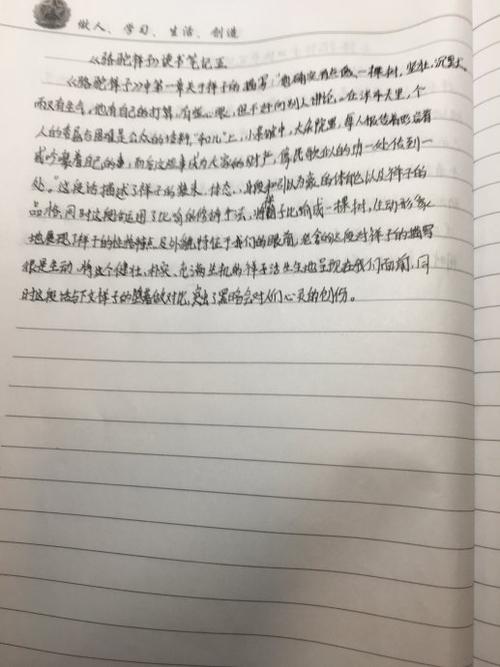 做人、学习、生活、创造
《骆驼祥子》读书笔记五
《骆驼祥子》中第一章关于祥子的描写："他确实有点像一棵树，坚壮，沉默，
而又有生气。他有自己的打算，有些心眼，但不好向别人讲论。在洋车夫里，个
人的委屈与困难是公众的话料，"车口儿"上，小茶馆中，大杂院里，每人报告着形容着
或吵嚷着自己的事，而后这些事成为大家的财产，像民歌似的由一处传到一
处。"这段话描述了祥子的 体态、身段和引以为豪的体格以及祥子的
品格，同时这段话运用了比喻的修辞手法，将祥子比喻成一棵树，生动形象
地展现了祥子的性格特点及外貌特征于我们的眼前，老舍的这段对祥子的描写
很是生动，将这个健壮、朴实、充满生机的祥子活生生地呈现在我们面前，同
时这段话与下文祥子的 做对比，突出了黑暗社会对人们心灵的创伤。